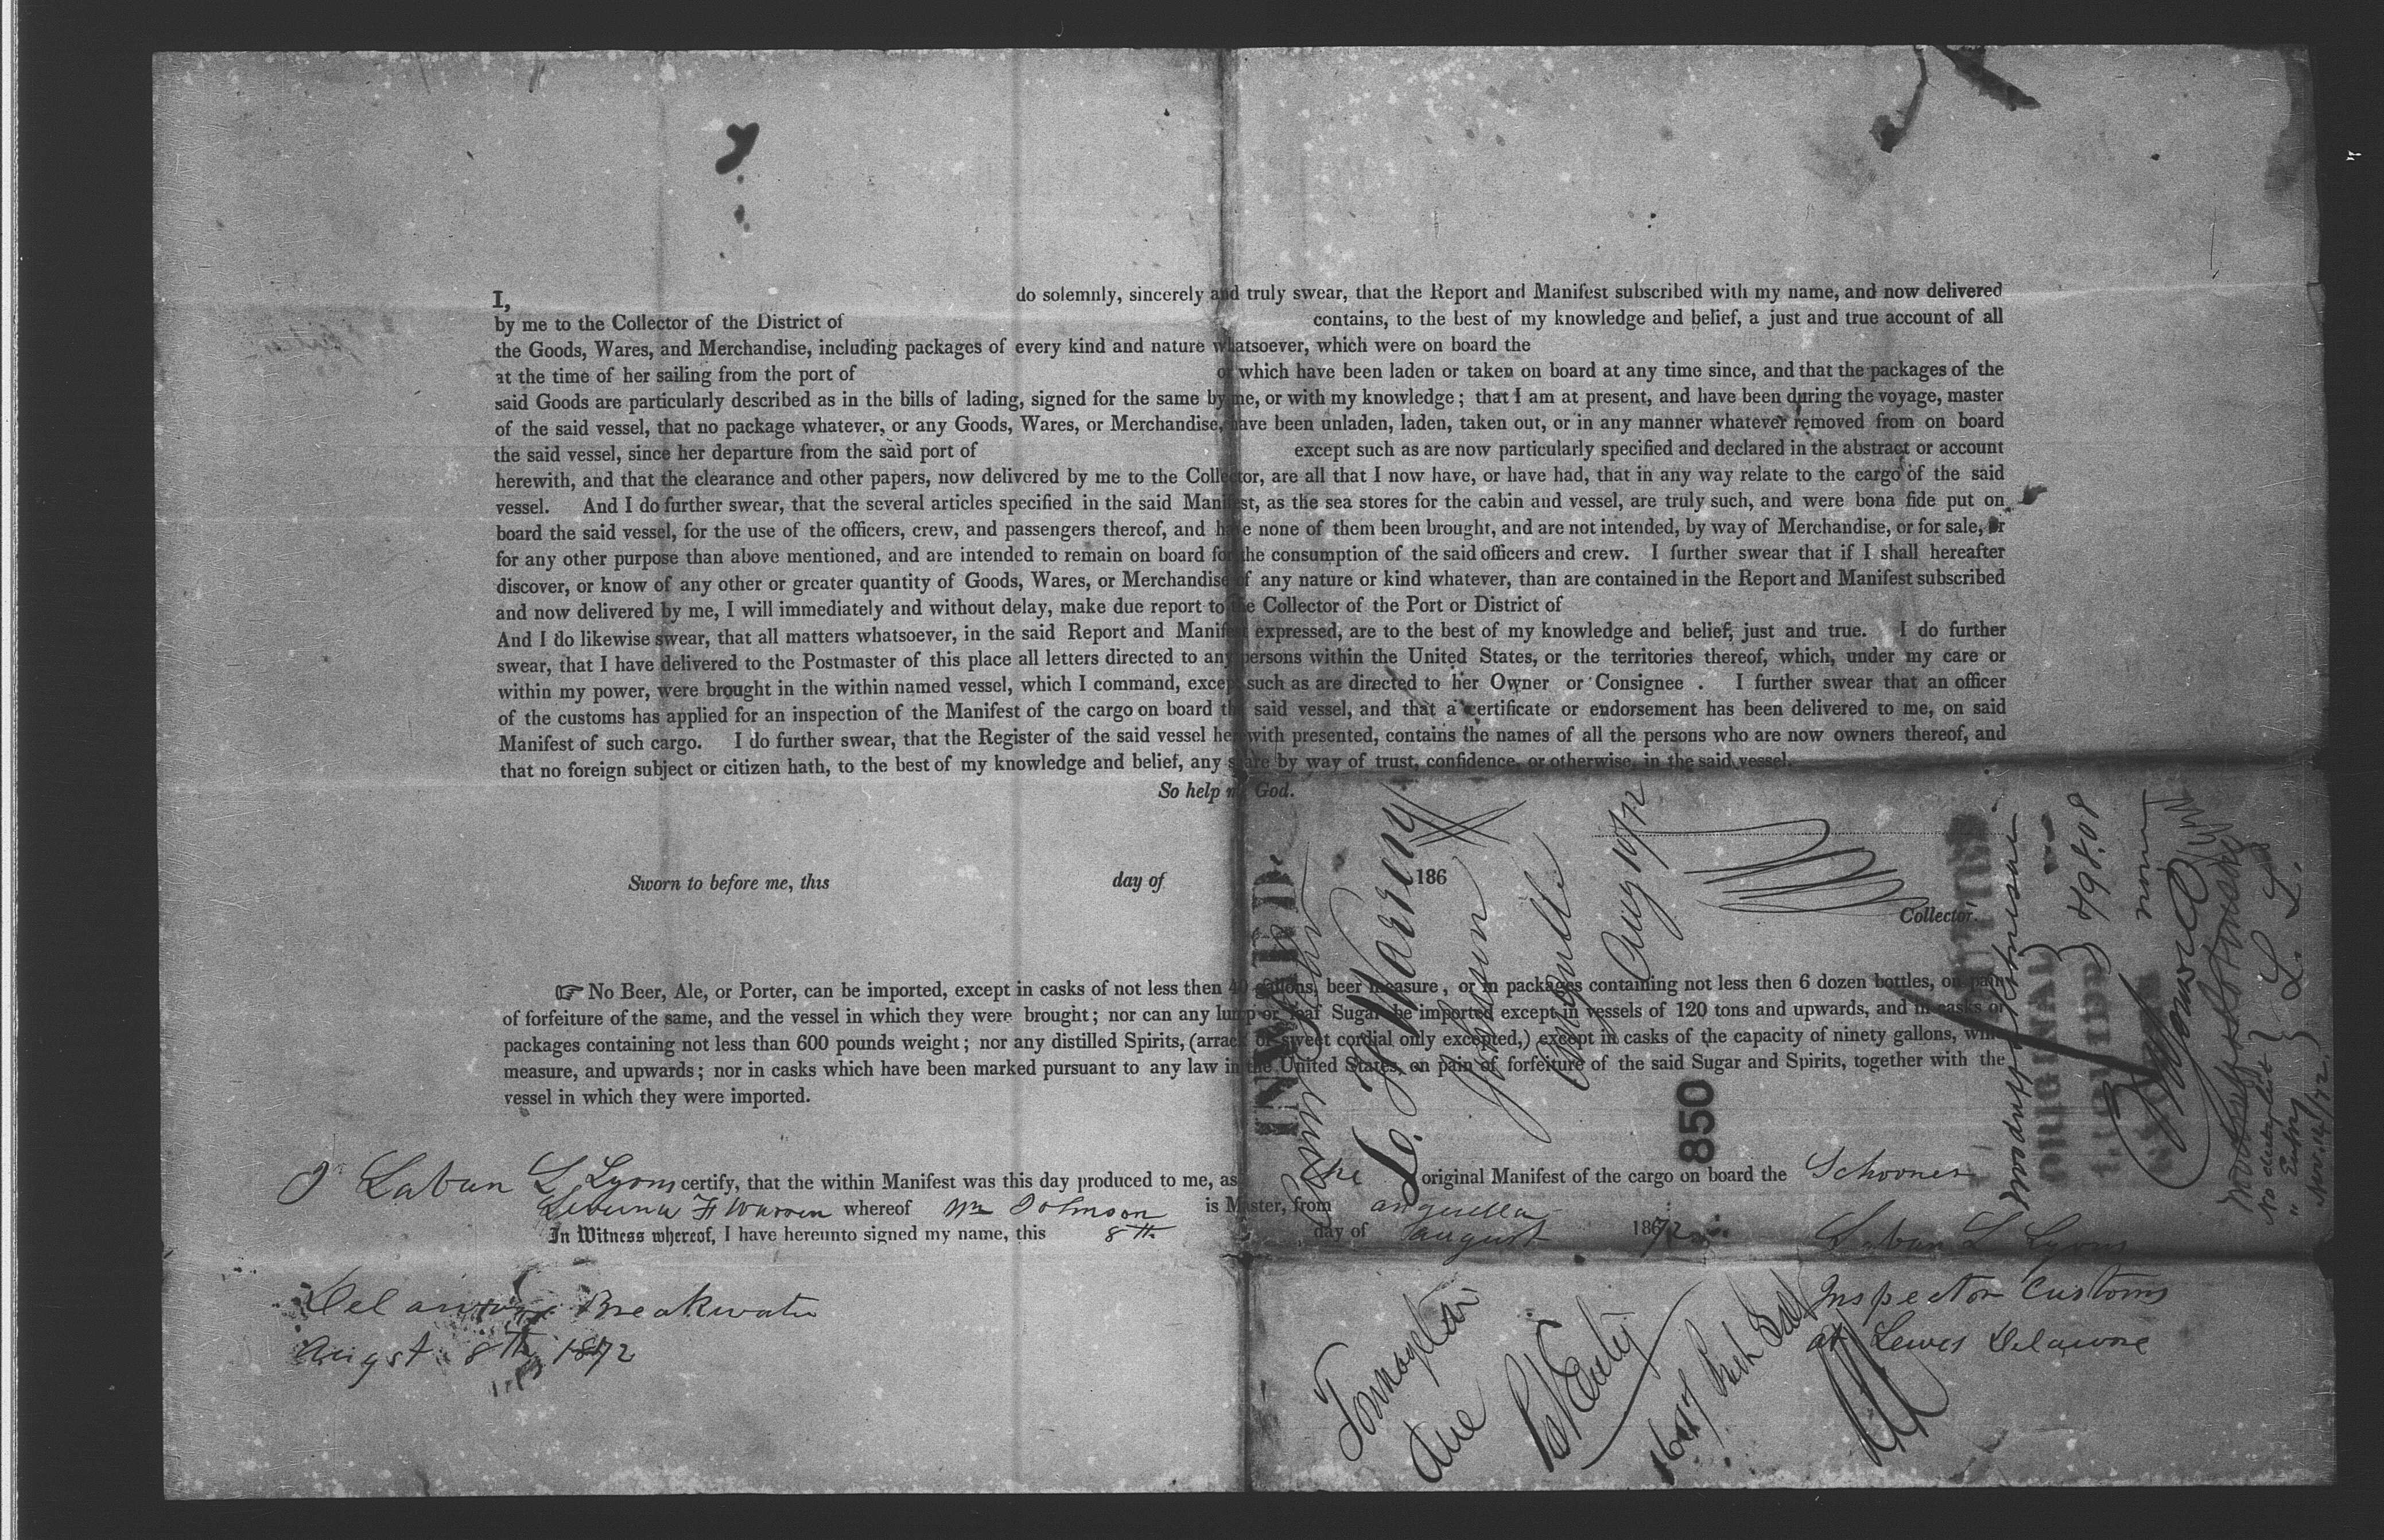 I, do solemnly, sincerely and truly swear, that the Report and Manifest subscribed with my name, and now delivered
by me to the Collector of the District of contains, to the best of my knowledge and belief, a just and true account of all
the Goods, Wares, and Merchandise, including packages of every kind and nature whatsoever, which were on board the
at the time of her sailing from the port of or which have been laden or taken on board at any time since, and that the packages of the
said Goods are particularly described as in the bills of lading, signed for the same by me, or with my knowledge; that I am at present, and have been during the voyage, master
of the said vessel, that no package whatever, or any Goods, Wares, or Merchandise, have been unladen, laden, taken out, or in any manner whatever removed from on board
the said vessel, since her departure from the said port of except such as are now particularly specified and declared in the abstract or account
herewith, and that the clearance and other papers, now delivered by me to the Collector, are all that I now have, or have had, that in any way relate to the cargo of the said
vessel. And I do further swear, that the several articles specified in the said Manifest, as the sea stores for the cabin and vessel, are truly such, and were bona fide put on
board the said vessel, for the use of the officers, crew, and passengers thereof, and have none of them been brought, and are not intended, by way of Merchandise, or for sale, or
for any other purpose than above mentioned, and are intended to remain on board for the consumption of the said officers and crew. I further swear that if I shall hereafter
discover, or know of any other or greater quantity of Goods, Wares, or Merchandise of any nature or kind whatever, than are contained in the Report and Manifest subscribed
and now delivered by me, I will immediately and without delay, make due report to the Collector of the Port or District of
And I do likewise swear, that all matters whatsoever, in the said Report and Manifest expressed, are to the best of my knowledge and belief, just and true. I do further
swear, that I have delivered to the Postmaster of this place all letters directed to any persons within the United States, or the territories thereof, which, under my care or
within my power, were brought in the within named vessel, which I command, except such as are directed to her Owner or Consignee . I further swear that an officer
of the customs has applied for an inspection of the Manifest of the cargo on board the said vessel, and that a certificate or endorsement has been delivered to me, on said
Manifest of such cargo. I do further swear, that the Register of the said vessel herewith presented, contains the names of all the persons who are now owners thereof, and
that no foreign subject or citizen hath, to the best of my knowledge and belief, any share by way of trust, confidence, or otherwise, in the said vessel.
So help me God.
Sworn to before me, this day of 186
Collector.
☞ No Beer, Ale, or Porter, can be imported, except in casks of not less then 40 gallons, beer measure, or in packages containing not less then 6 dozen bottles, on pain
of forfeiture of the same, and the vessel in which they were brought; nor can any lump or loaf Sugar be imported except in vessels of 120 tons and upwards, and in casks or
packages containing not less than 600 pounds weight; nor any distilled Spirits, (arrack or sweet cordial only excepted,) except in casks of the capacity of ninety gallons, wine
measure, and upwards; nor in casks which have been marked pursuant to any law in the United States, on pain of forfeiture of the said Sugar and Spirits, together with the
vessel in which they were imported.
I Laban L Lyons certify, that the within Manifest was this day produced to me, as the original Manifest of the cargo on board the Schooner
F Warren whereof Wm Johnson is Master, from anguilla
In Witness whereof, I have hereunto signed my name, this 8th day of august 1872
Laban L Lyons
Inspector Customs
at Lewes Delaware
Delaware Breakwater
Augst 8th 1872
INWARD
Johnson
Anguilla
Aug 10/72
850
Tonnage
L. L.